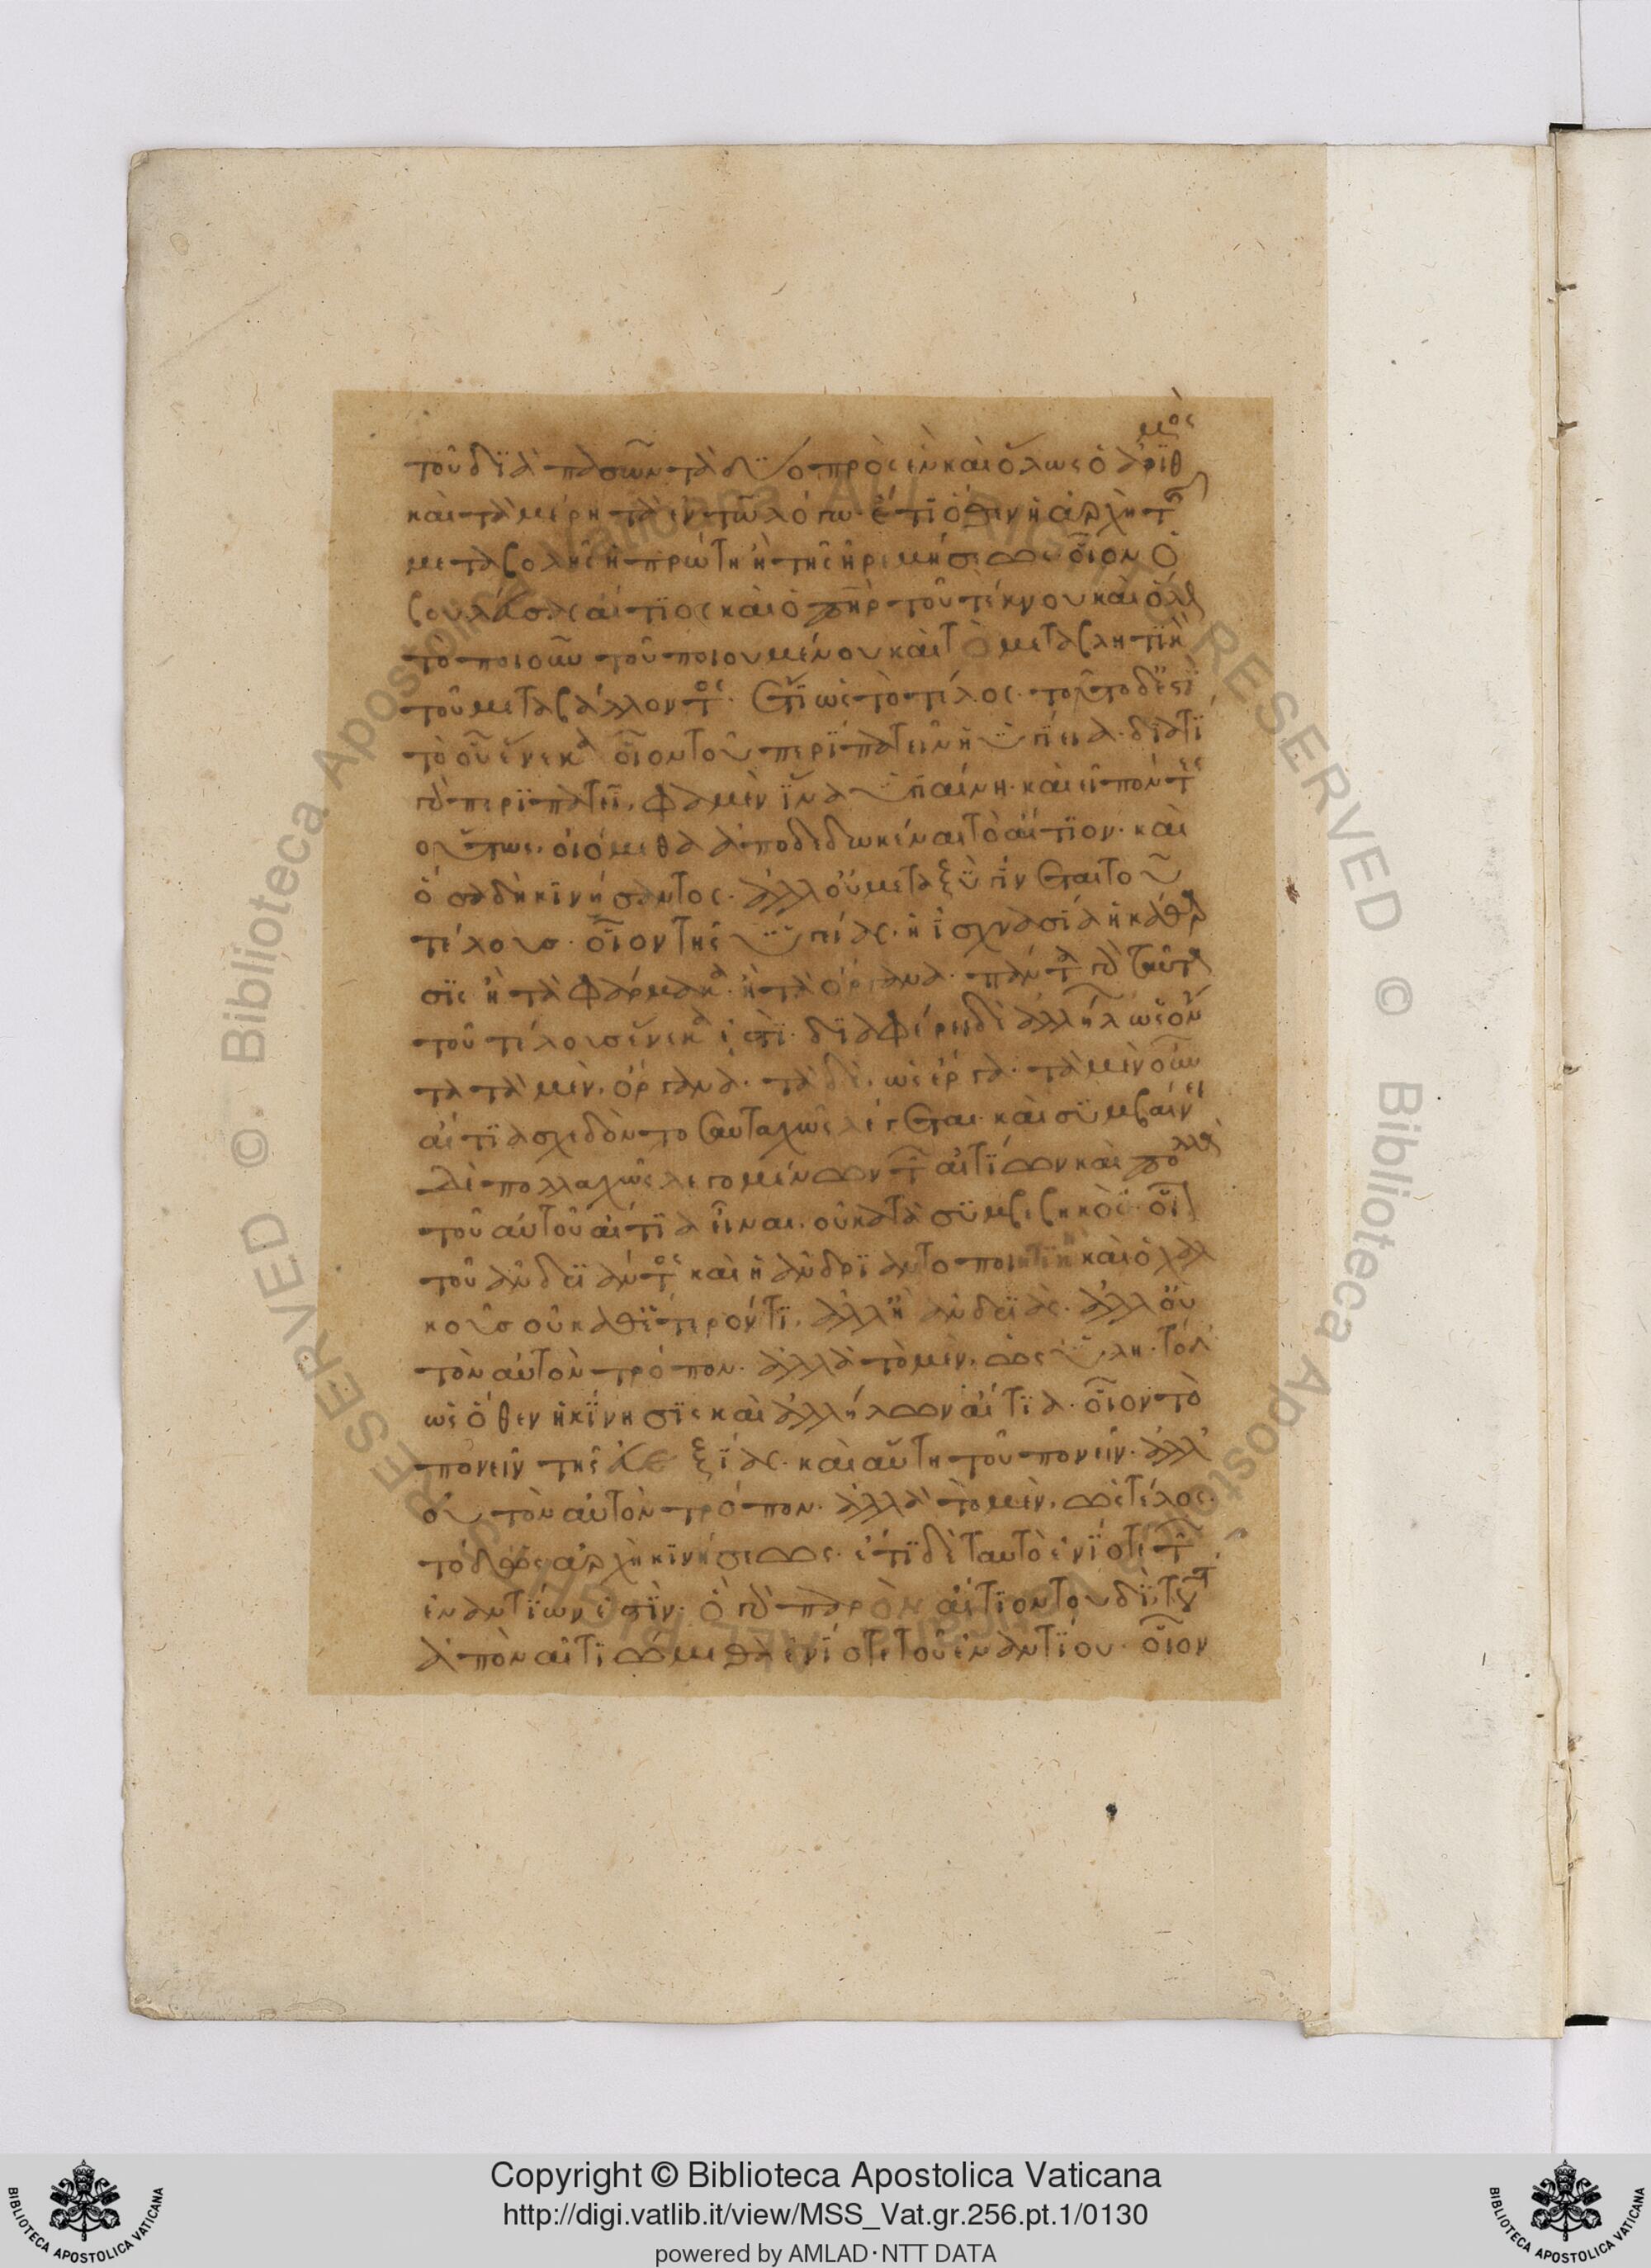 τοῦ δϊὰ πασῶν τὰ δύο πρὸς ἓν καὶ ὅλως ὁ ἀρϊθμὸς
καὶ τὰ μέρη τὰ ἐν τῶ λόγω· ἔτϊ ὅθεν ἡ ἀρχὴ τῆς
μεταβολῆς ἡ πρώτη ἢ τῆς ἠρεμήσεως οἷον ὁ
βουλεύσας αἴτϊος καὶ ὁ πηρ τοῦ τέκνου καὶ ὅλως
τὸ ποιοῦν τοῦ ποιουμένου καὶ τὸ μεταβλητϊκὸν
τοῦ μεταβάλλοντος· ἔτϊ ὡς τὸ τέλος· τοῦτο δ ἐστὶ
τὸ οὗ ἕνεκα οἷον τοῦ περϊπατεῖν ἡ ὑγίεια· δϊατί
γὰρ περϊπατεῖ, φαμὲν ἵνα ὑγιαίνη· καὶ εἰπόντες
οὕτως, οἰόμεθα ἀποδεδωκέναι τὸ αἴτϊον· καὶ
ὅσα δὴ κϊνήσαντος· ἄλλου μεταξὺ γίνεται τοῦ
τέλους· οἷον τῆς ὑγείας· ἡ ἰσχνασία ἡ κάθαρ
σϊς ἢ τὰ φάρμακα· ἢ τὰ ὄργανα· πάντα γὰρ ταῦτα
τοῦ τέλους ἕνεκα ἐστὶ· δϊαφέρει δὲ ἀλλήλων ὡς ὄν
τα τὰ μὲν, ὄργανα· τὰ δὲ, ὡς ἔργα· τὰ μὲν οὖν
αἴτϊα σχεδὸν τοσαυταχῶς λέγεται· καὶ συμβαίνει
δὲ πολλαχῶς λεγομένων τῶν αἰτίων καὶ πολλὰ
τοῦ αὐτοῦ αἴτϊα εἶναι, οὐ κατὰ συμβεβηκὸς· οἷον
τοῦ ἀνδρϊάντος καὶ ἡ ἀνδρϊαντοποιητϊκὴ καὶ ὁ χαλ
κοῦς οὐ καθ ἕτερόν τϊ, ἀλλ ἢ ἀνδρϊὰς· ἀλλ οὐ
τὸν αὐτὸν τρόπον· ἀλλὰ τὸ μὲν, ὡς ὕλη· τὸ δ
ὡς ὅθεν ἡ κίνησϊς καὶ ἀλλήλων αἴτϊα· οἷον τὸ
πονεῖν τῆς εὐεξίας· καὶ αὕτη τοῦ πονεῖν· ἀλλ
οὐ τὸν αὐτὸν τρόπον· ἀλλὰ τὸ μὲν, ὡς τέλος·
τὸ δ ὡς ἀρχὴ κϊνήσεως· ἔτϊ δὲ ταυτὸ ἐνίοτε τῶν
ἐναντίων ἐστίν· ὃ γὰρ παρὸν αἴτϊον τουδὶ, τοῦτ
ἀπὸν αἰτϊώμεθα ἐνίοτε τοῦ ἐναντίου· οἷον
Copyright © Biblioteca Apostolica Vaticana
http://digi.vatlib.it/view/MSS_Vat.gr.256.pt.1/0130
powered by AMLAD·NTT DATA